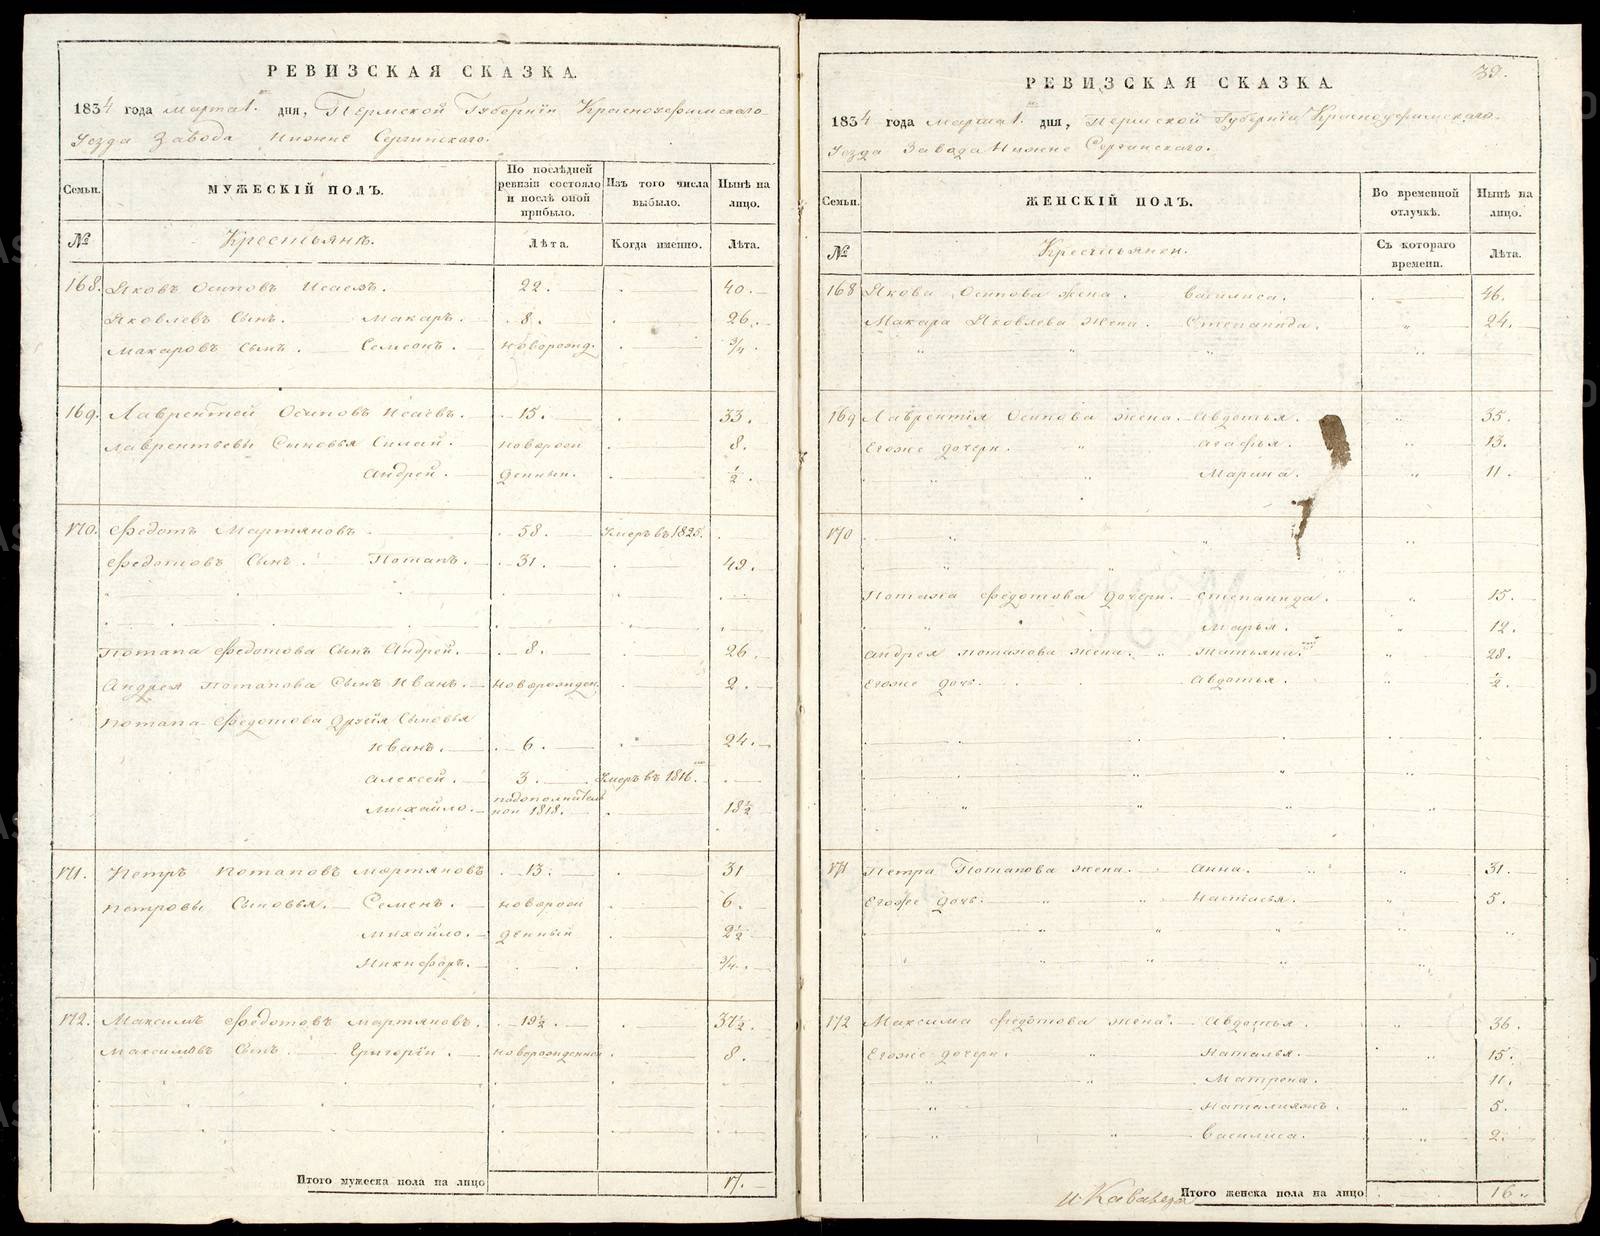 РЕВИЗСКАЯ СКАЗКА.
1834 года марта 1. дня, Пермской Губернiи Красноуфимскаго
Уезда Завода Нижне Сергинскаго.
Семьи.
МУЖЕСКIЙ ПОЛЪ.
По послѣдней ревизiи состояло и послѣ оной прибыло.
Изъ того числа выбыло.
Нынѣ на лицо.
№
Крестьянъ.
Лѣта.
Когда именно.
Лѣта.
168. Яковъ Осиповъ Исаевъ. 22. 40.
Яковлевъ Сынъ. Макаръ. 8. 26.
Макаровъ Сынъ. Семеонъ. новорожд. 3/4.
169. Лаврентей Осиповъ Исаевъ. 15. 33.
Лаврентьевы Сыновья Силай. новорож 8.
Андрей. денныи. 1/2.
170. Федотъ Мартяновъ. 58. Умеръ въ 1825.
Федотовъ Сынъ. Потапъ. 31. 49.
Потапа Федотова Сынъ Андрей. 8. 26.
Андрея Потапова Сынъ Иванъ. новорожден. 2.
Потапа Федотова другiя Сыновья
Иванъ. 6. 24.
Алексей. 3. Умеръ въ 1816.
Михайло. подополнитель
ной 1818. 18 1/2
171. Петръ Потаповъ Мартяновъ 13. 31
Петровы Сыновья. Семенъ. новорож 6.
Михайло. денный 2 1/2
Никифаръ. 3/4.
172. Максимъ Федотовъ Мартяновъ. 19 1/2. 37 1/2.
Максимовъ Сынъ. Григорiи. новорожденной 8.
Итого мужеска пола на лицо 17.
39.
РЕВИЗСКАЯ СКАЗКА.
1834 года Марта 1. дня, Пермской Губернiи Красноуфимскаго
Уезда Завода Нижне Сергинскаго.
Семьи.
ЖЕНСКIЙ ПОЛЪ.
Во временной отлучкѣ.
Нынѣ на лицо.
№
Крестьянки.
Съ котораго времени.
Лѣта.
168 Якова Осипова жена. Василиса. 46.
Макара Яковлева жена. Степанида. 24.
169 Лаврентiя Осипова жена. Авдотья. 35.
Егоже дочери. Агафья. 13.
Марина. 11.
170
Потапа Федотова дочери. Степанида. 15.
Марья. 12.
Андрея Потапова жена. Татьяна. 28.
Егоже дочь. Авдотья. 1/2.
171 Петра Потапова жена. Анна. 31.
Егоже дочь. Настасья. 5.
172 Максима Федотова жена. Авдотья. 36.
Егоже дочери. Наталья. 15.
Матрена. 11.
5.
Василиса. 2.
Итого женска пола на лицо 16